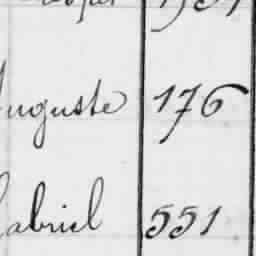 Auguste 176
Gabriel 551